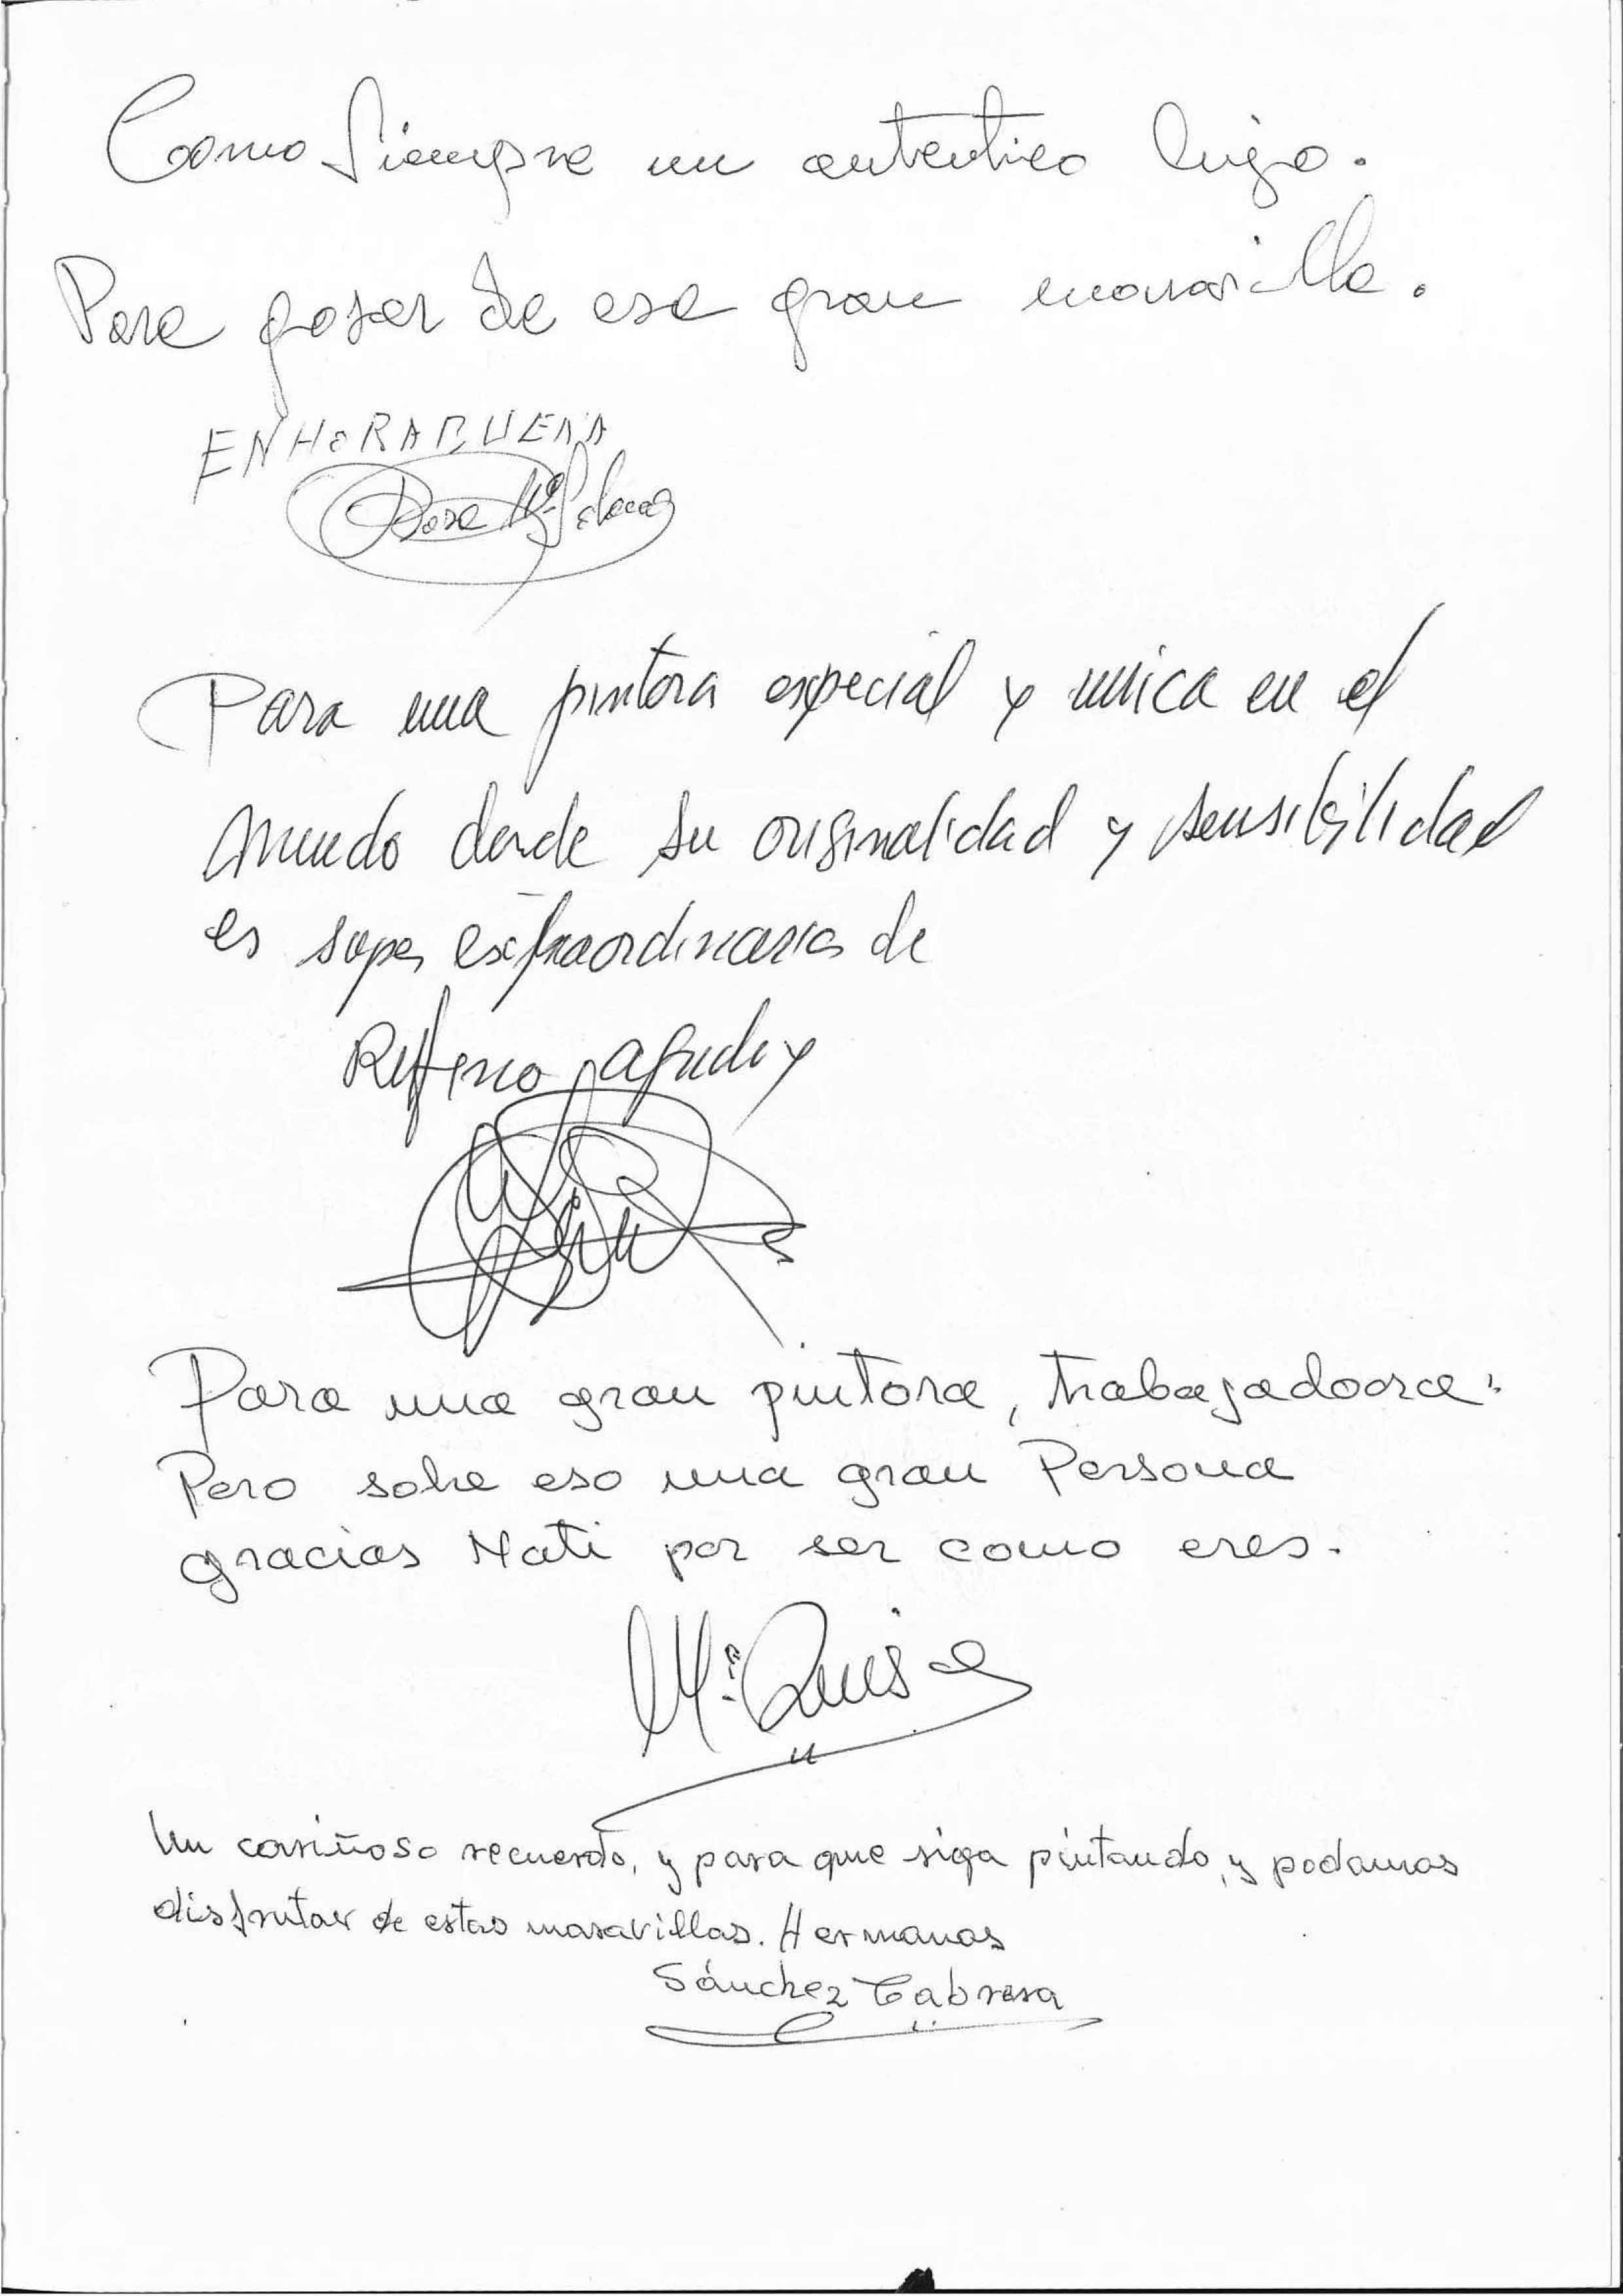 Como Siempre un autentico lujo.
Para gozar de esa gran maravilla.
ENHORABUENA
Rosa Mª
Para una pintora especial y unica en el
mundo desde su originalidad y sensibilidad
es super extraordinaria de
Para una gran pintora, trabajadoora.
Pero sobre eso una gran Persona
gracias Nati por ser como eres.
Mª Luisa
Un cariñoso recuerdo, y para que siga pintando, y podamos
disfrutar de estas maravillas. Hermanas
Sánchez Cabrera